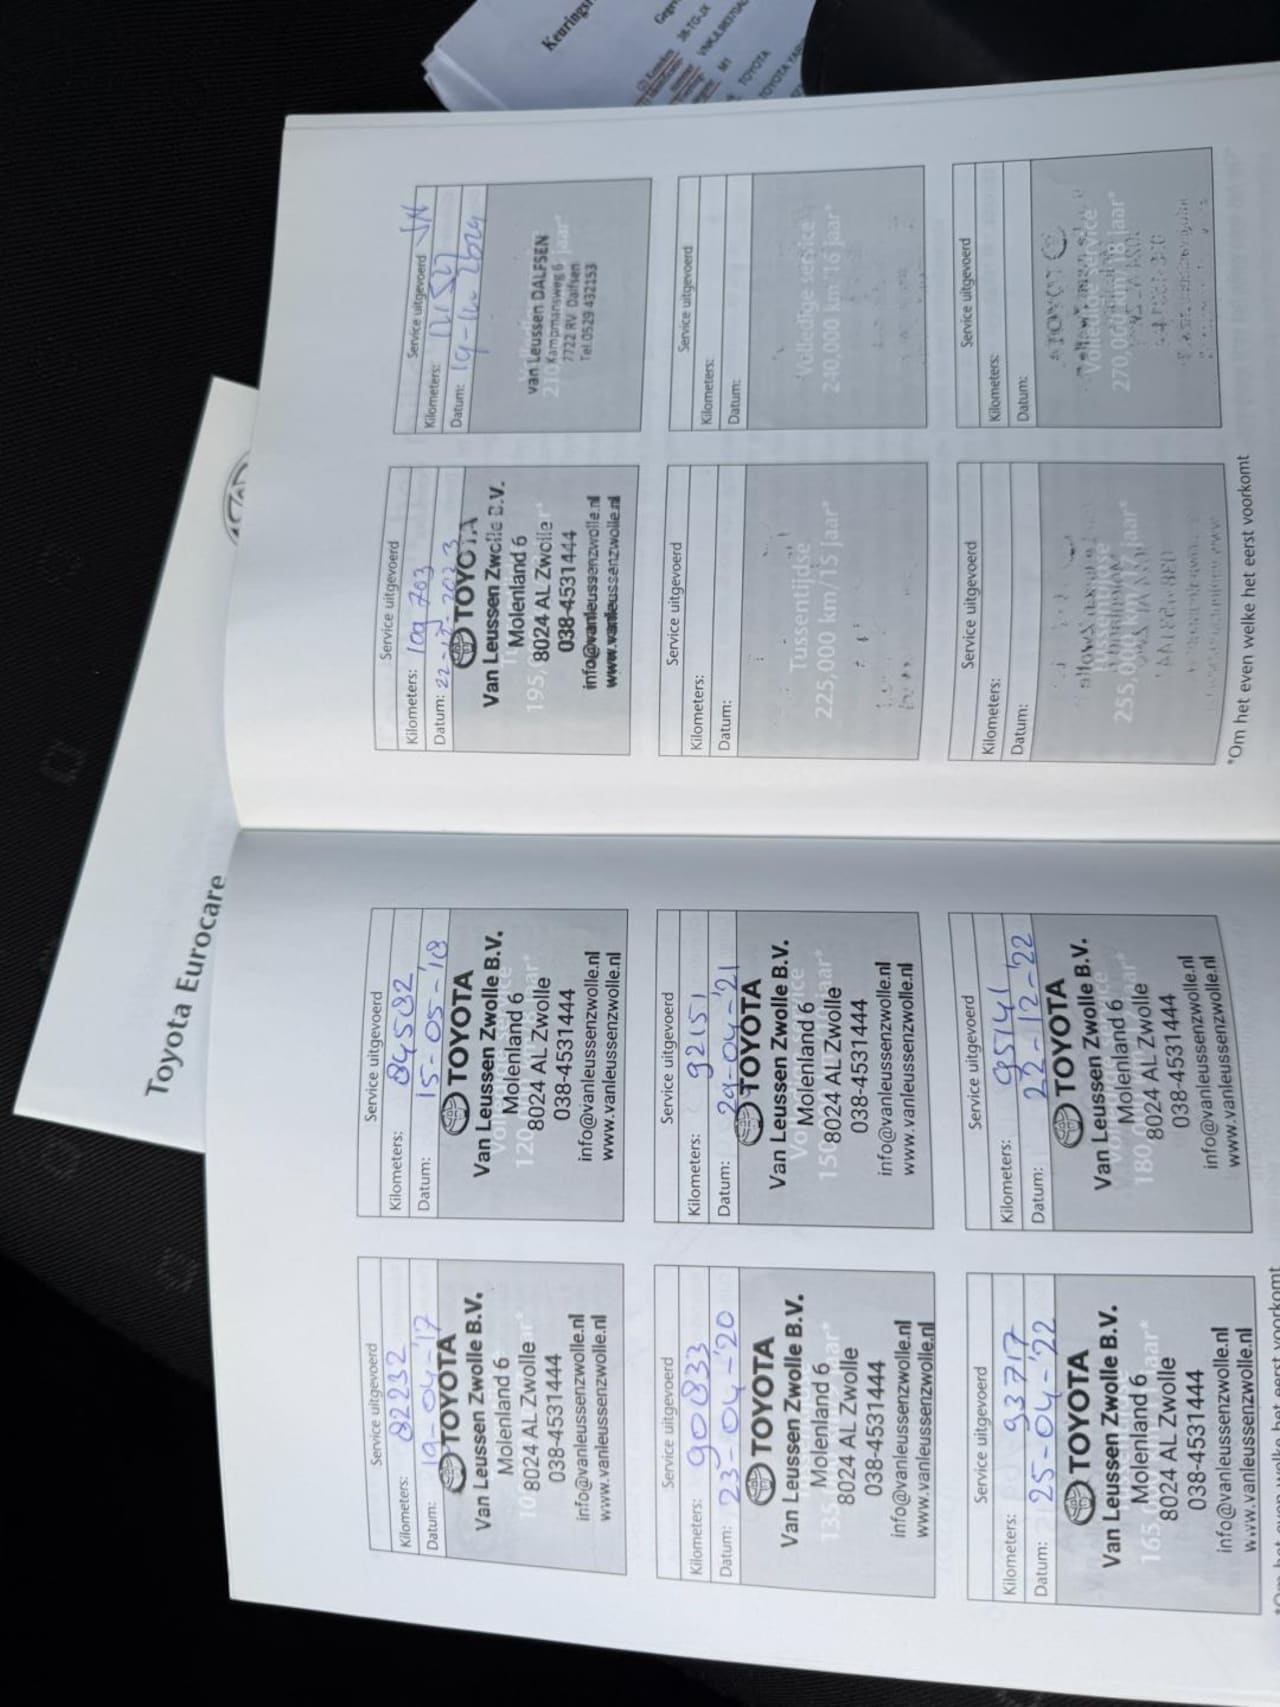 Keuringsr
TOYOTA
Toyota Eurocare
Service uitgevoerd
Kilometers: 82232
Datum: 19-04-'17
TOYOTA
Van Leussen Zwolle B.V.
Molenland 6
8024 AL Zwolle
038-4531444
info@vanleussenzwolle.nl
www.vanleussenzwolle.nl
Service uitgevoerd
Kilometers: 84582
Datum: 15-05-'18
TOYOTA
Van Leussen Zwolle B.V.
Molenland 6
8024 AL Zwolle
038-4531444
info@vanleussenzwolle.nl
www.vanleussenzwolle.nl
Service uitgevoerd
Kilometers: 90833
Datum: 23-04-'20
TOYOTA
Van Leussen Zwolle B.V.
Molenland 6
8024 AL Zwolle
038-4531444
info@vanleussenzwolle.nl
www.vanleussenzwolle.nl
Service uitgevoerd
Kilometers: 92151
Datum: 29-04-'21
TOYOTA
Van Leussen Zwolle B.V.
Molenland 6
8024 AL Zwolle
038-4531444
info@vanleussenzwolle.nl
www.vanleussenzwolle.nl
Service uitgevoerd
Kilometers: 93717
Datum: 25-04-'22
TOYOTA
Van Leussen Zwolle B.V.
Molenland 6
8024 AL Zwolle
038-4531444
info@vanleussenzwolle.nl
www.vanleussenzwolle.nl
Service uitgevoerd
Kilometers: 95141
Datum: 22-12-'22
TOYOTA
Van Leussen Zwolle B.V.
Molenland 6
8024 AL Zwolle
038-4531444
info@vanleussenzwolle.nl
www.vanleussenzwolle.nl
Service uitgevoerd
Kilometers: 109703
Datum: 22-12-2023
TOYOTA
Van Leussen Zwolle B.V.
Molenland 6
8024 AL Zwolle
038-4531444
info@vanleussenzwolle.nl
www.vanleussenzwolle.nl
Service uitgevoerd
Kilometers:
Datum:
van Leussen DALFSEN
Kampmansweg 6
7722 RV Dalfsen
Tel.0529 432153
Service uitgevoerd
Kilometers:
Datum:
Tussentijdse
225,000 km/15 jaar*
Service uitgevoerd
Kilometers:
Datum:
Volledige service
240,000 km/16 jaar*
Service uitgevoerd
Kilometers:
Datum:
Tussentijdse
255,000 km/17 jaar*
Service uitgevoerd
Kilometers:
Datum:
Volledige service
270,000 km/18 jaar*
*Om het even welke het eerst voorkomt